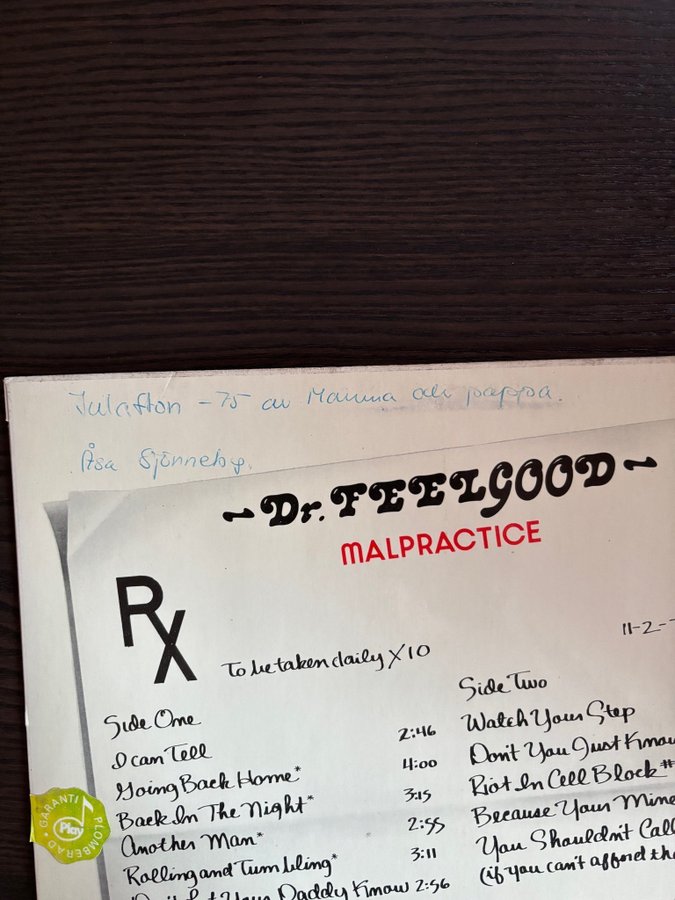 Julafton -75 av Mamma och pappa.
Åsa Sjönneby.
~Dr. FEELGOOD~
MALPRACTICE
RX
To be taken daily X 10
11-2-
Side One
I can Tell 2:46
Going Back Home* 4:00
Back In The Night* 3:15
Another Man* 2:55
Rolling and Tumbling* 3:11
Don't Let Your Daddy Know 2:56
Side Two
Watch Your Step
Don't You Just Know
Riot In Cell Block #
Because Your Mine
You Shouldn't Call
(if you can't afford th
GARANTI PLOMBERAD
Play